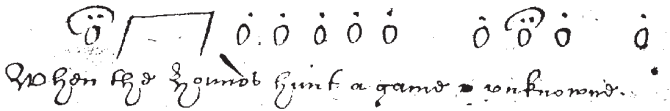 When the Hounds hunt a game unknowne.